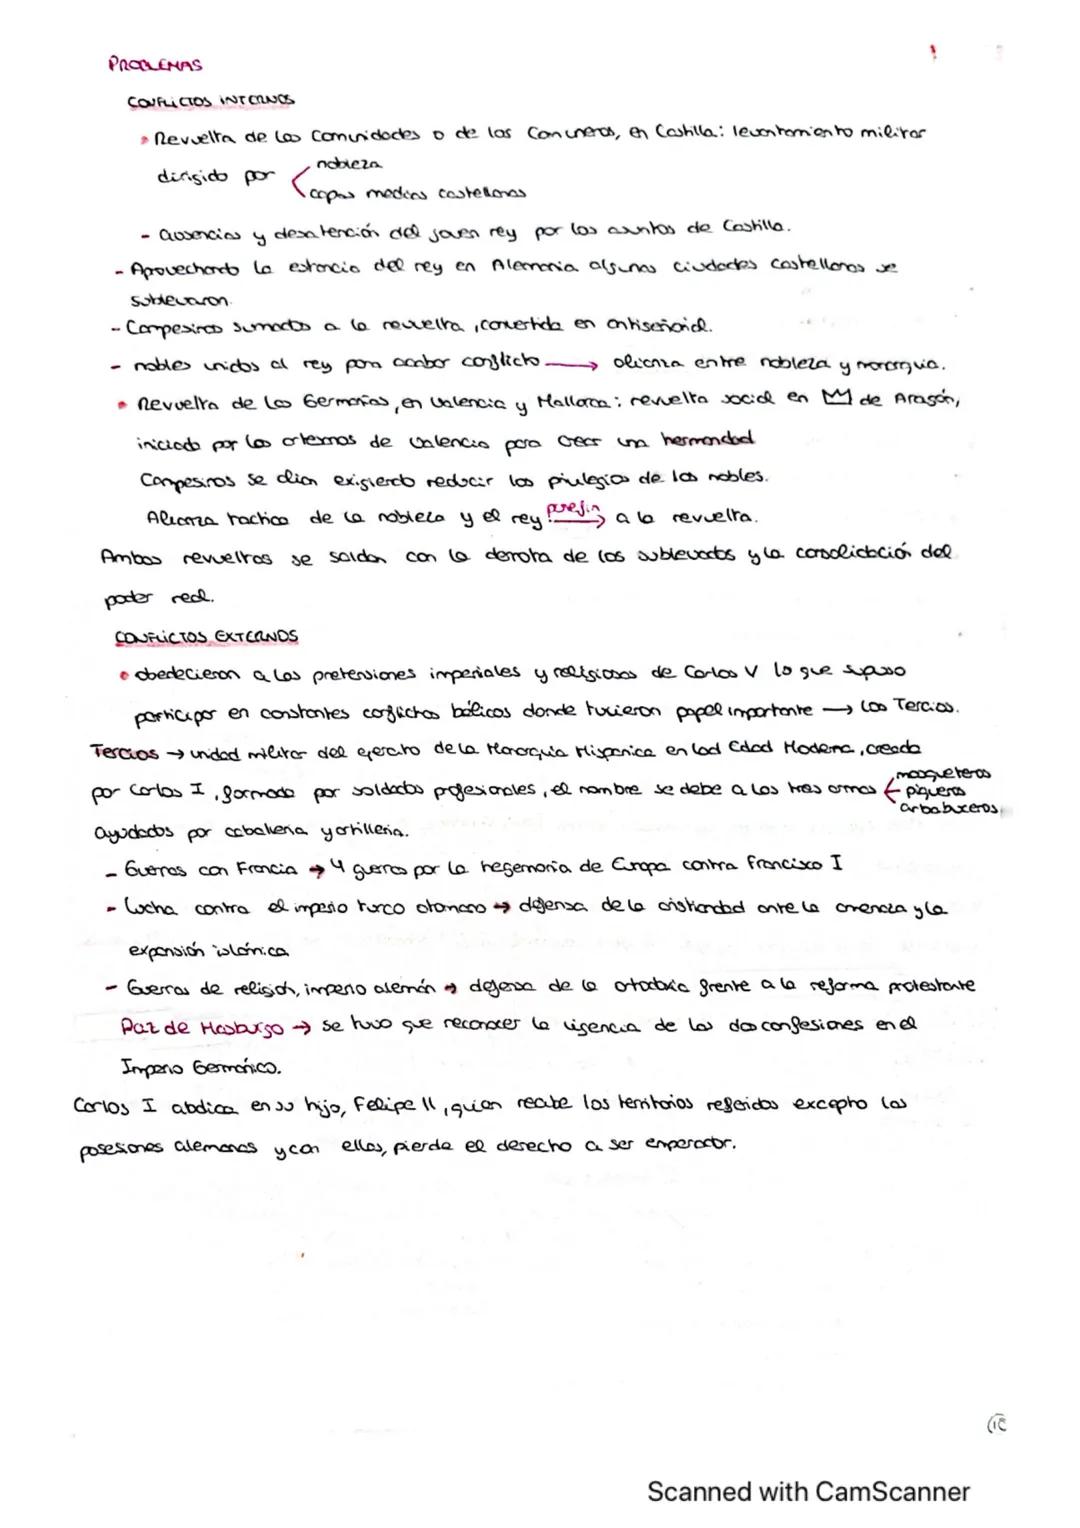 PROBLEMAS
CONFLICTOS INTERNOS
• Revuelta de las Comunidades o de los Comuneros, en Castilla: levantamiento militar
dirigido por nobleza
capas medias castellanas
- ausencias y desatención del joven rey por los asuntos de Castilla.
- Aprovechando la estancia del rey en Alemania algunas ciudades castellanas se
sublevaron.
- Campesinos sumados a la revuelta, convertida en antiseñorial.
- nobles unidos al rey para acabar conflicto → alianza entre nobleza y monarquía.
• Revuelta de las Germanías, en Valencia y Mallorca: revuelta social en de Aragón,
iniciada por los artesanos de Valencia para crear una hermandad
Campesinos se alían exigiendo reducir los privilegios de los nobles.
Alianza tactica de la nobleza y el rey pone fin → a la revuelta.
Ambas revueltas se saldan con la derrota de los sublevados y la consolidación del
poder real.
CONFLICTOS EXTERNOS
• obedecieron a las pretensiones imperiales y religiosas de Carlos V lo que supuso
participar en constantes conflictos bélicos donde tuvieron papel importante → los Tercios.
Tercios → unidad militar del ejercito de la Monarquía Hispanica en lad Edad Moderna, creada
por Carlos I, formada por soldados profesionales, el nombre se debe a las tres armas mosqueteros
piqueros
arbabuceros,
ayudados por caballeria y artilleria.
- Guerras con Francia → 4 guerras por la hegemonía de Europa contra Francisco I
- Lucha contra el imperio turco otomano → defensa de la cristiandad ante la amenaza y la
expansión islámica
- Guerras de religión, imperio alemán → defensa de la ortodoxia frente a la reforma protestante
Paz de Hasburgo → se tuvo que reconocer la vigencia de las dos confesiones en el
Imperio Germánico.
Carlos I abdica en su hijo, Felipe II, quien recibe los territorios referidos excepto las
posesiones alemanas y con ellas, pierde el derecho a ser emperador.
Scanned with CamScanner